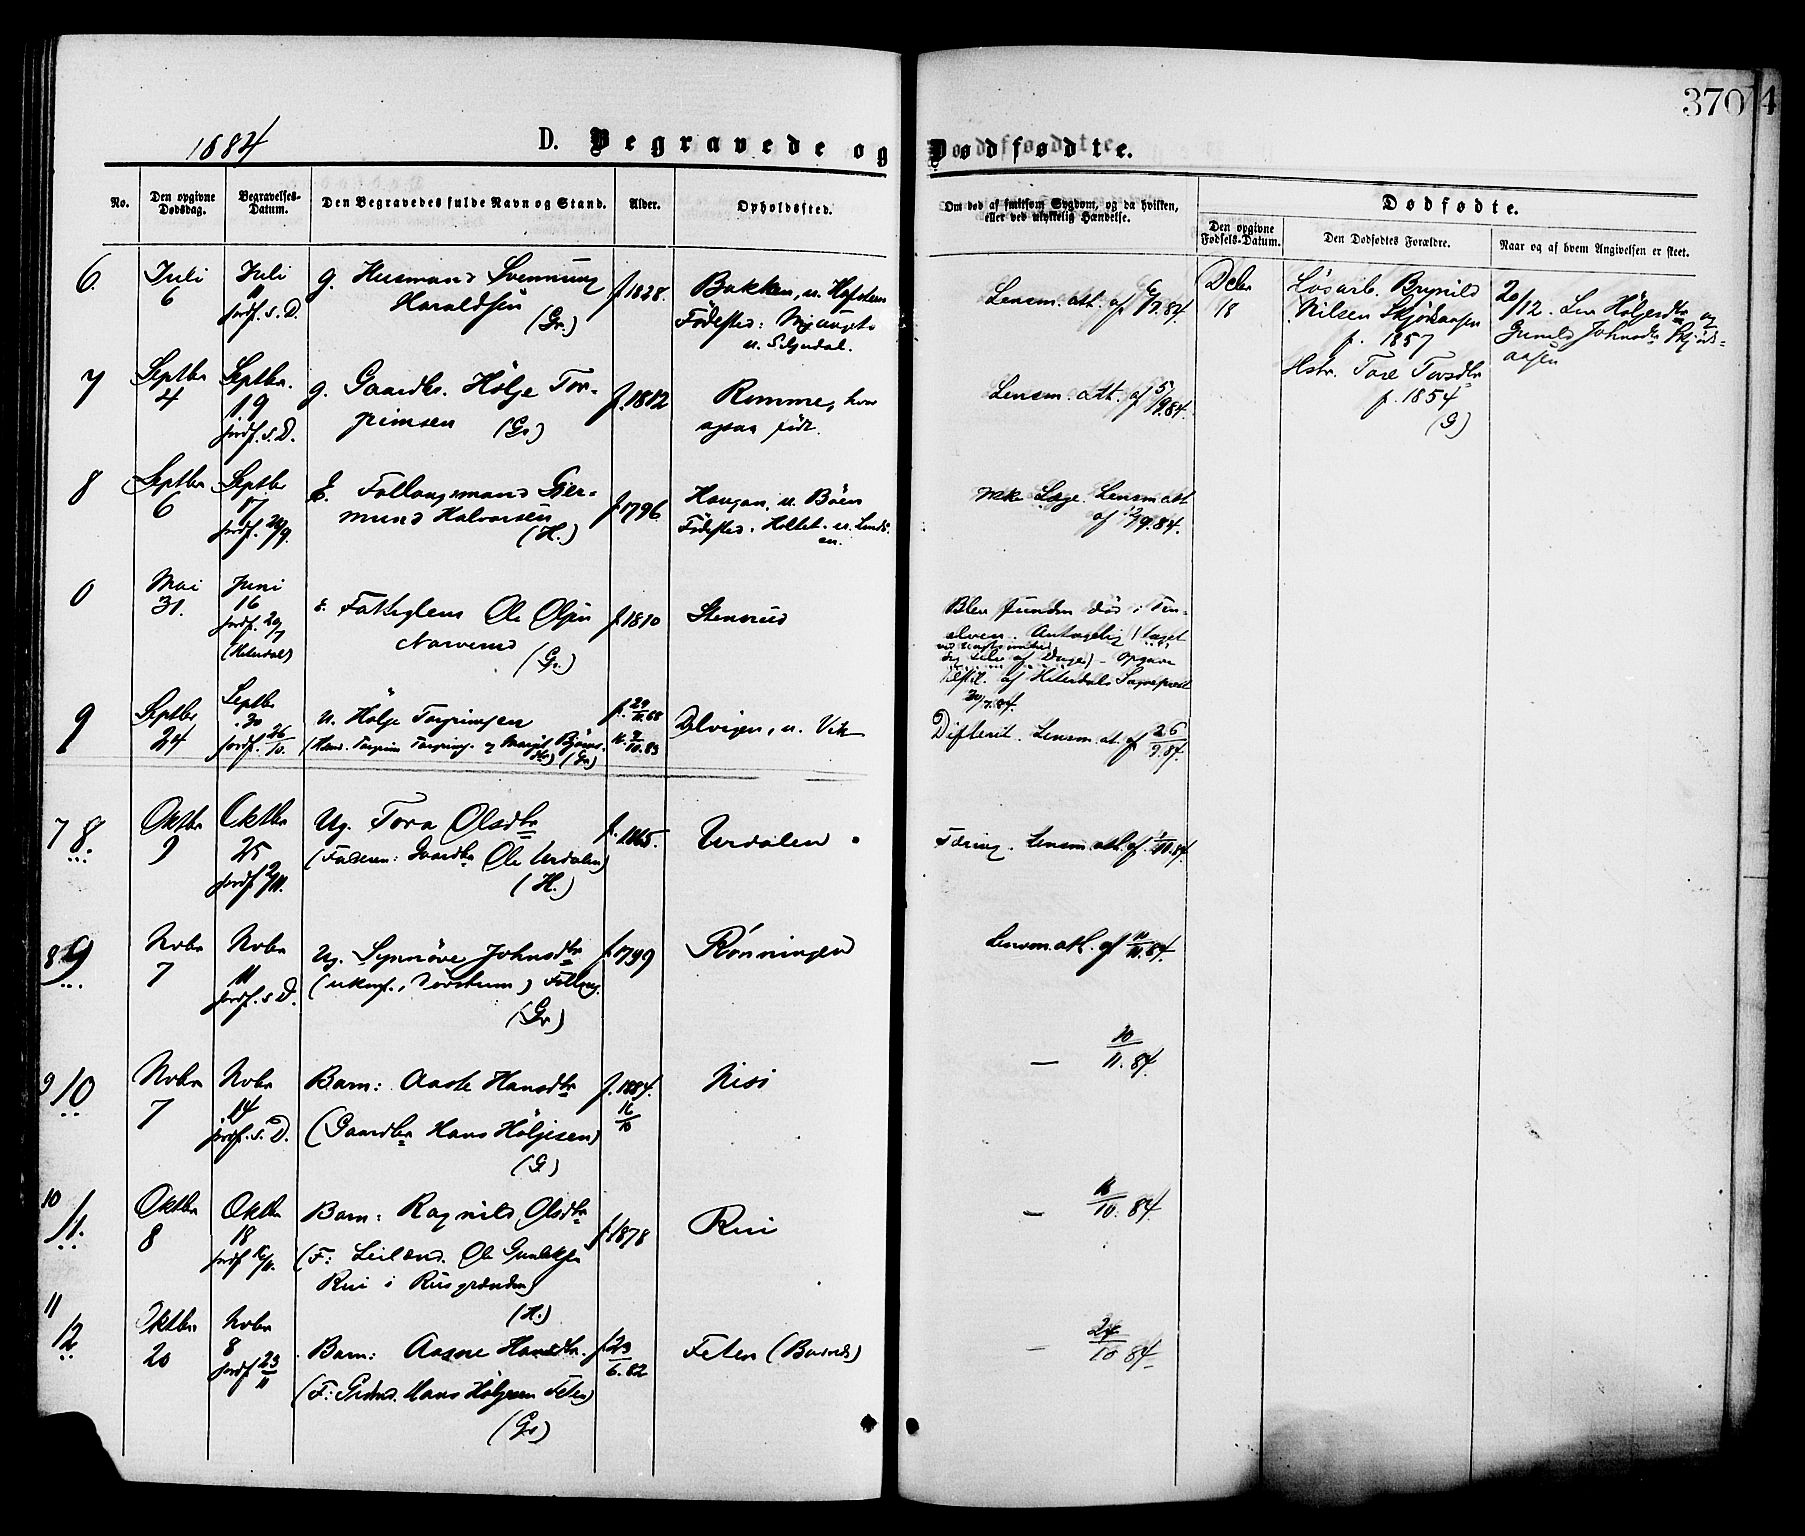 370
4
1884
D. Begravede og Dødfødte.
No.
Den opgivne
Dødsdag.
Begravelses-
Datum.
Den Begravedes fulde Navn og Stand.
Alder.
Opholdssted.
Om død af smitsom Sygdom, og da hvilken,
eller ved ulykkelig Hændelse.
Dødfødte.
Den opgivne
Fødsels-Datum.
Den Dødfødtes Forældre.
Naar og af hvem Angivelsen er skeet.
6.
Juli
6
Juli
11
jordf. s. D.
g. Husmand Svennung
Haraldsen
(Gr.)
f. 1828.
Bakken, u. Hafsten
Fødested:
u. Seljordal.
Lensm. att. af 9/7.84.
Decbr
18
Løsarb. Brynild
Nilsen Skjønaasen
f. 1857
Hstr. Tore Torsdtr
f. 1854
(G)
20/12. Liv Höljesdtr og
Gunild Johnsdtr Skjøns-
aasen
7
Septbr
4
Septbr.
19
jordf. s. D.
g. Gaardbr. Hölje Tor-
grimsen (Gr.)
f. 1812
Romme, hvor
ogsaa født.
Lensm. att. af 5/9.84.
8
Septbr
6
Septbr
17
jordf. 20/9.
E. Follaugsmand Gjer-
mund Halvorsen
(H.)
f. 1796
Haugan, u. Böen
Fødested. Holtet. u. Lands-
en.
ikke Læge. Lensm att
af 12/9.84.
0
Mai
31.
Juni
16
jordf. 20/7
(Hiterdal)
s. Fattiglem Ole Olsen
Narverud
(Gr.)
f. 1810
Stensrud
Blev funden død i Tin-
elven. Antagelig
af Hiterdals Sognepræst
20/7.84.
9
Septbr
24
Septbr
30
jordf. 26/10.
u. Hölje Torgrimsen
(Husm. Torgrim Torgrims. og Margit Björns-
dtr) (Gr)
f. 29/11.68
k. 7/10.83
Dalvigen, u. Vik
Difterit. Lensm. at. af 26/9.84.
7 8.
Oktbr
9
Oktbr
25
jordf 2/11.
Ug. Tora Olsdtr
(Faderen: Gaardbr Ole Verdalen)
(H.)
f. 1865.
Verdalen
Tæring. Lensm att. af 1/11.84
8 9
Novbr
7
Novbr
11
jordf. s D.
Ug. Synnöve Johnsdtr
(ukonf., Døvstum) Follaug.
(Gr)
f. 1799
Rønningen
Lensm. att. af 10/11.84.
9 10
Novbr
7
Novbr
14
jordf. s. D.
Barn: Aaste Hansdtr
(Gaardbr Hans Höljesen)
(G)
f. 1884.
16/10
Nisi
— 10/11.84.
10 11.
Oktbr
8
Oktbr
18
jordf 16/11.
Barn: Ragnild Olsdtr
(F: Leilænd. Ole Gunleksen
Rui i Ruisgrænden)
(H.)
f. 1878
Rui
— 11/10.84.
11 12
Oktbr
20
Novbr
8
jordf 23/11
Barn: Aasne Hansdtr.
(F: Grdmd. Hans Höljesen Feten)
(Gr)
f. 23/6.82
Feten (Bøindb)
— 24/10 84